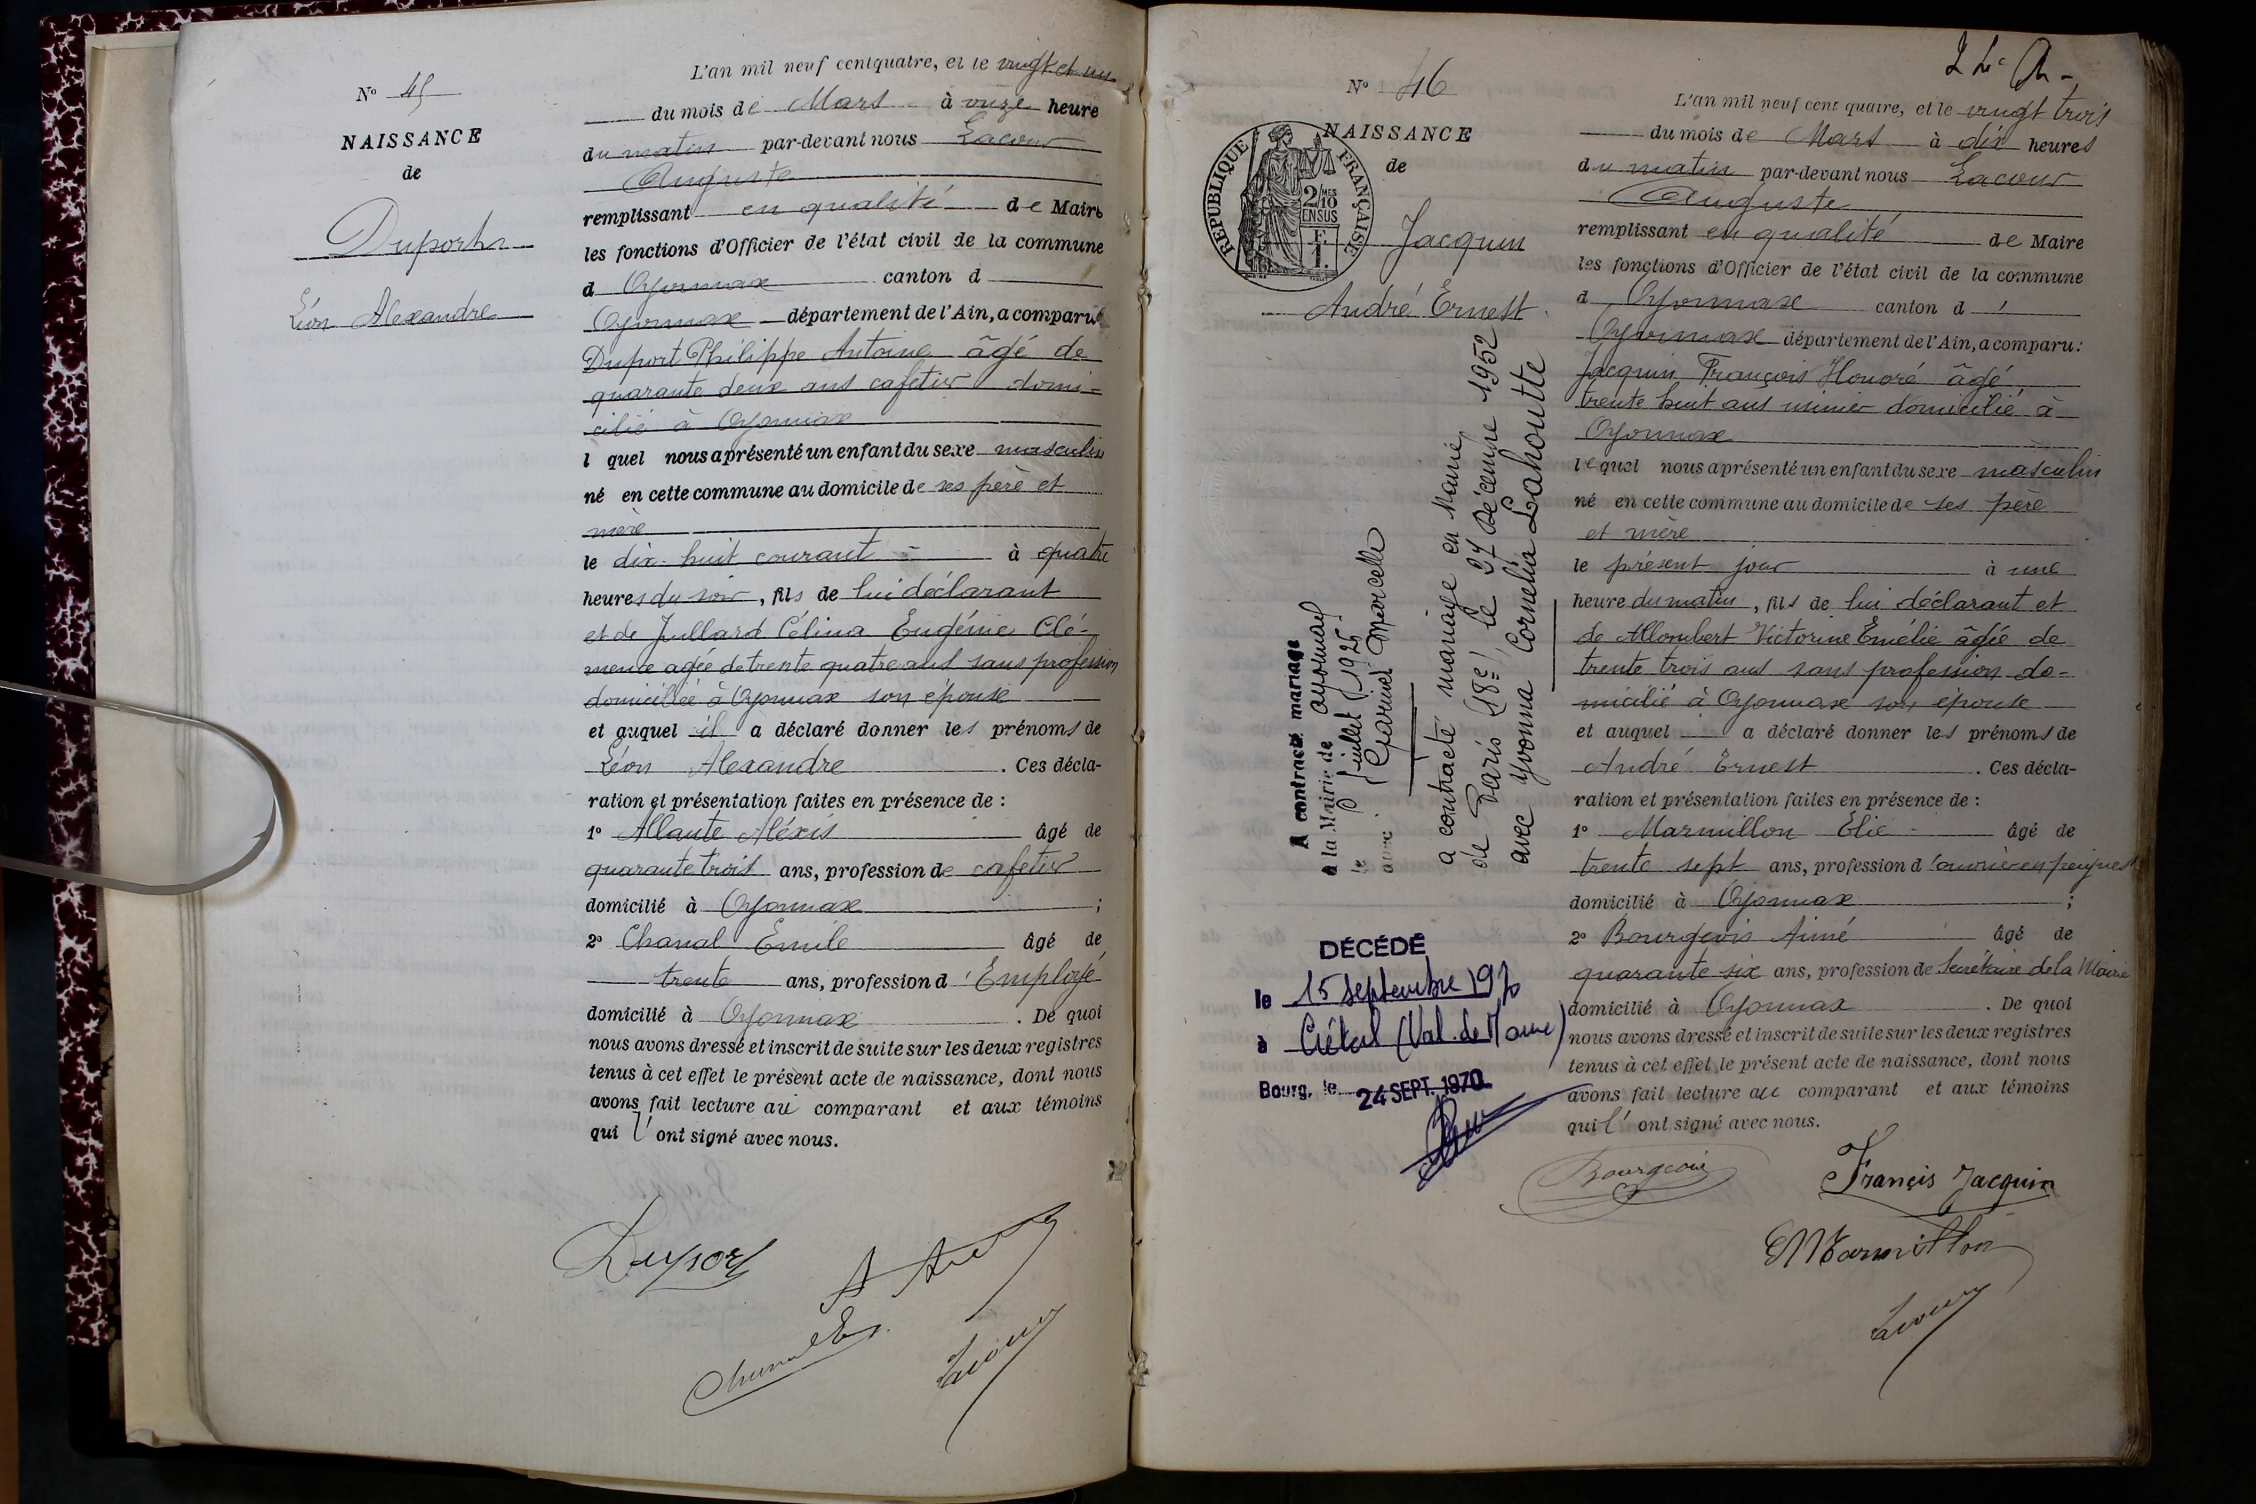 N° 45
NAISSANCE
de
Duport
Léon Alexandre
L'an mil neuf centquatre, et le vingt et un
du mois de Mars à onze heure
du matin par-devant nous Lacour
Auguste
remplissant en qualité de Maire
les fonctions d'Officier de l'état civil de la commune
d Oyonnax canton d
Oyonnax département de l'Ain, a comparu
Duport Philippe Antoine âgé de
quarante deux ans cafetier domi-
cilié à Oyonnax
l quel nous a présenté un enfant du sexe masculin
né en cette commune au domicile de ses père et
mère
le dix-huit courant à quatre
heures du soir, fils de lui déclarant
et de Jullard Célina Eugénie Clé-
mence agée de trente quatre ans sans profession
domiciliée à Oyonnax son épouse
et auquel il a déclaré donner les prénoms de
Léon Alexandre. Ces décla-
ration et présentation faites en présence de :
1° Allante Aléxis âgé de
quarante trois ans, profession de cafetier
domicilié à Oyonnax ;
2° Chanal Emile âgé de
trente ans, profession d'Employé
domicilié à Oyonnax. De quoi
nous avons dressé et inscrit de suite sur les deux registres
tenus à cet effet le présent acte de naissance, dont nous
avons fait lecture au comparant et aux témoins
qui l'ont signé avec nous.
Duport
Lacour
N° 46
NAISSANCE
de
RÉPUBLIQUE FRANÇAISE
2/10 MES
EN SUS
F.
1.
Jacquin
André Ernest
A contracté mariage
à la Mairie de Oyonnax
le Juillet 1925
avec Marcelle
a contracté mariage en Mairie
de Paris (18e), le 27 Décembre 1952
avec Yvonna Cornelia Lahoutte
DÉCÉDÉ
le 15 septembre 1970
à Créteil (Val-de-Marne)
Bourg, le 24 SEPT. 1970
L'an mil neuf cent quatre, et le vingt trois
du mois de Mars à dix heures
du matin par-devant nous Lacour
Auguste
remplissant en qualité de Maire
les fonctions d'Officier de l'état civil de la commune
d Oyonnax canton d'
Oyonnax département de l'Ain, a comparu :
Jacquin François Honoré âgé
trente huit ans domicilié à
Oyonnax
lequel nous a présenté un enfant du sexe masculin
né en cette commune au domicile de ses père
et mère
le présent jour à une
heure du matin, fils de lui déclarant et
de Allombert Victorine Emélie âgée de
trente trois ans sans profession do-
micilié à Oyonnax son épouse
et auquel a déclaré donner les prénoms de
André Ernest. Ces décla-
ration et présentation faites en présence de :
1° Marmillon Elie âgé de
trente sept ans, profession d'ouvrier en peignes
domicilié à Oyonnax ;
2° Bourgeois Aimé âgé de
quarante six ans, profession de Secrétaire de la Mairie
domicilié à Oyonnax. De quoi
nous avons dressé et inscrit de suite sur les deux registres
tenus à cet effet le présent acte de naissance, dont nous
avons fait lecture au comparant et aux témoins
qui l'ont signé avec nous.
Bourgeois
Francis Jacquin
Marmillon
Lacour